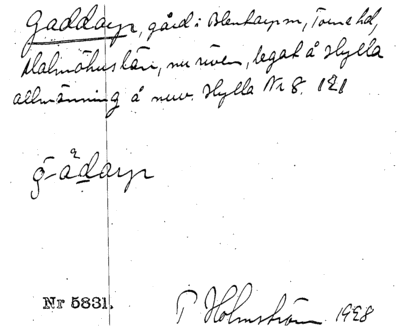 Gaddarp, gård i Blentarp sn, Torna hd,
Malmöhus län, nu riven, legat å Hylla
allmänning å nuv. Hylla Nr 8. 121
g-ådarp
Nr 5831.
P Holmström 1928